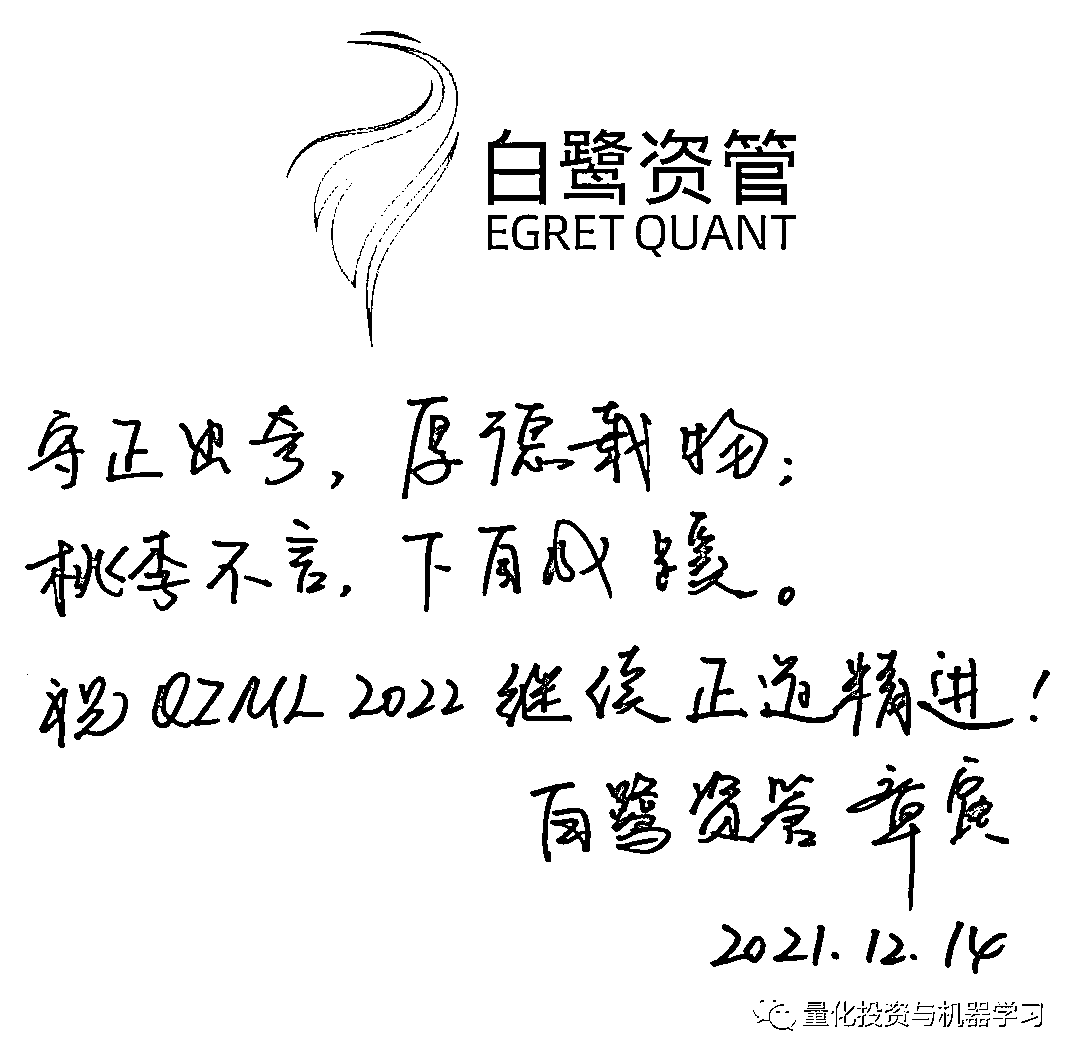 白鹭资管
EGRET QUANT
守正出奇，厚德载物；
桃李不言，下自成蹊。
祝QIML 2022继续正道精进！
白鹭资管 章寅
2021.12.14
量化投资与机器学习